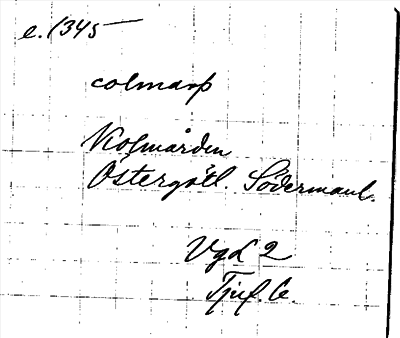 c. 1345
colmarþ
Kolmården
Östergötl. Södermanl.
VgL 2
Tjuf. 6.